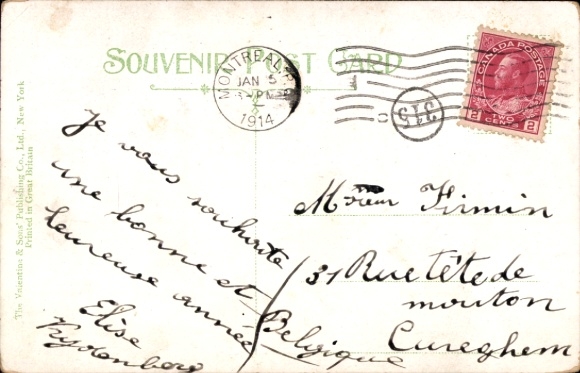 SOUVENIR POST CARD
MONTREAL
JAN 5
PM
1914
315
CANADA POSTAGE
2 TWO CENTS 2
The Valentine & Sons' Publishing Co., Ltd., New York
Printed in Great Britain
Je vous souhaite
une bonne et
heureuse année
Elise
Firmin
31 Rue tête de
mouton
Cureghem
Belgique